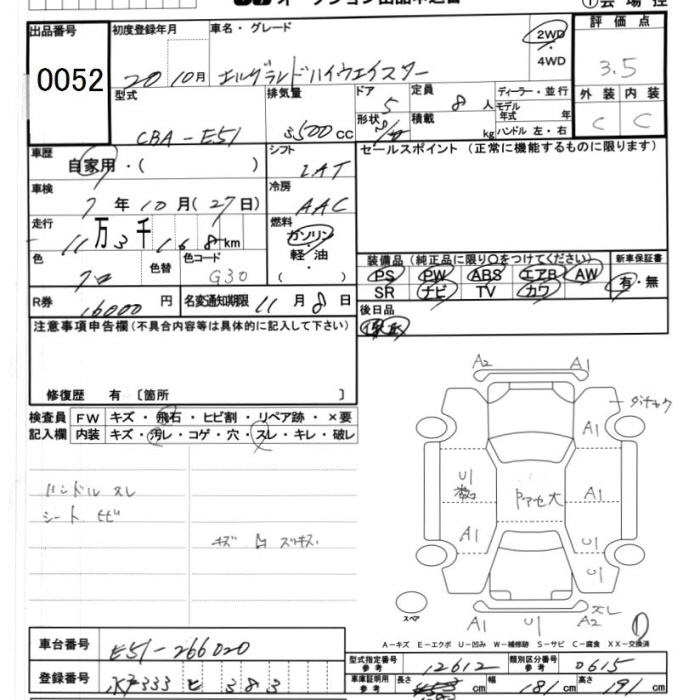 出品番号 初度登録年月 車名・グレード 2WD・4WD 評価点
0052 20 10月 エルグランドハイウェイスター 3.5
型式 排気量 ドア形状 5 定員 8 人 ディーラー・並行 外装 内装
CBA-E51 3500 cc 積載 kg モデル年式 年 ハンドル 左・右 C C
車歴 自家用・( ) シフト セールスポイント (正常に機能するものに限ります)
車検 7年10月(27日) 冷房 AAC
走行 11万3千168km 燃料 ガソリン 軽・油 ( )
色 クロ 色替 色コード G30
装備品 (純正品に限り○をつけてください) 新車保証書
PS PW ABS エアB AW 有・無
SR ナビ TV カワ
R券 16000円 名変通知期限 11月8日 後日品
注意事項申告欄(不具合内容等は具体的に記入して下さい)
修復歴 有 〔箇所 〕
検査員 FW キズ・飛石・ヒビ割・リペア跡・×要
記入欄 内装 キズ・汚レ・コゲ・穴・スレ・キレ・破レ
ハンドル スレ
シート ヒビ
A2 A1
A1
U1 A1
A1 U1
U1
スペア A1 U1 A2 スレ
A-キズ E-エクボ U-凹み W-補修跡 S-サビ C-腐食 XX-交換済
車台番号 E51-266020
型式指定番号 参考 12612 類別区分番号 参考 0615
登録番号 333 ヒ 383
車庫証明用 参考 長さ cm 幅 181 cm 高さ 191 cm